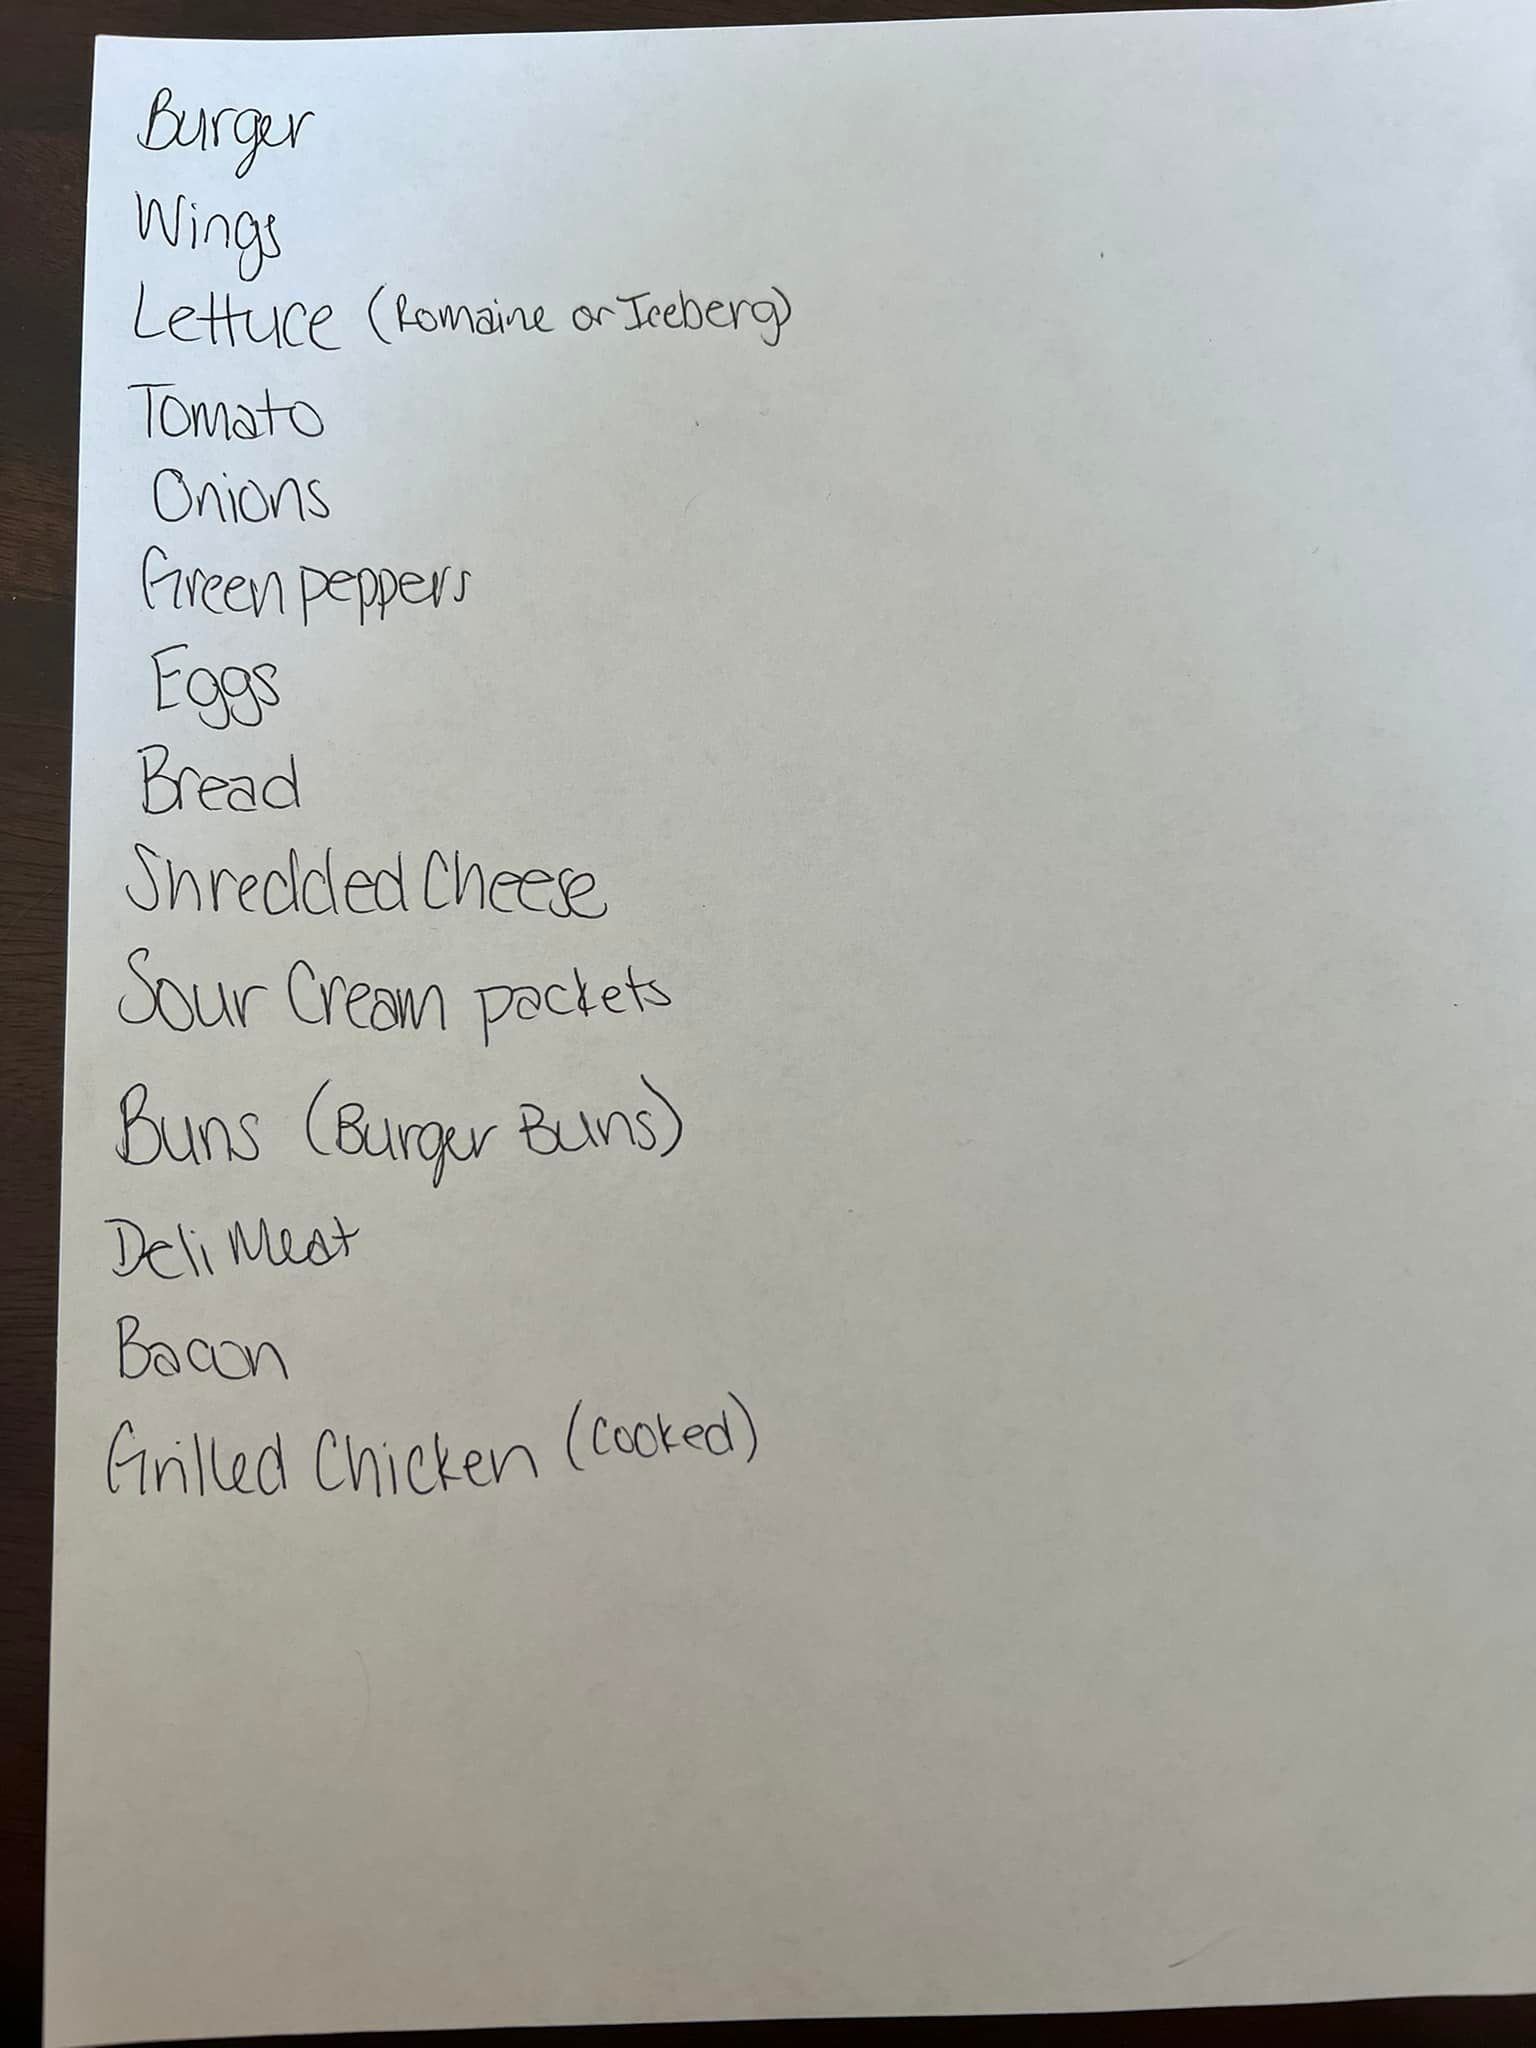 Burger
Wings
Lettuce (Romaine or Iceberg)
Tomato
Onions
Green peppers
Eggs
Bread
Shredded Cheese
Sour Cream packets
Buns (Burger Buns)
Deli Meat
Bacon
Grilled Chicken (Cooked)